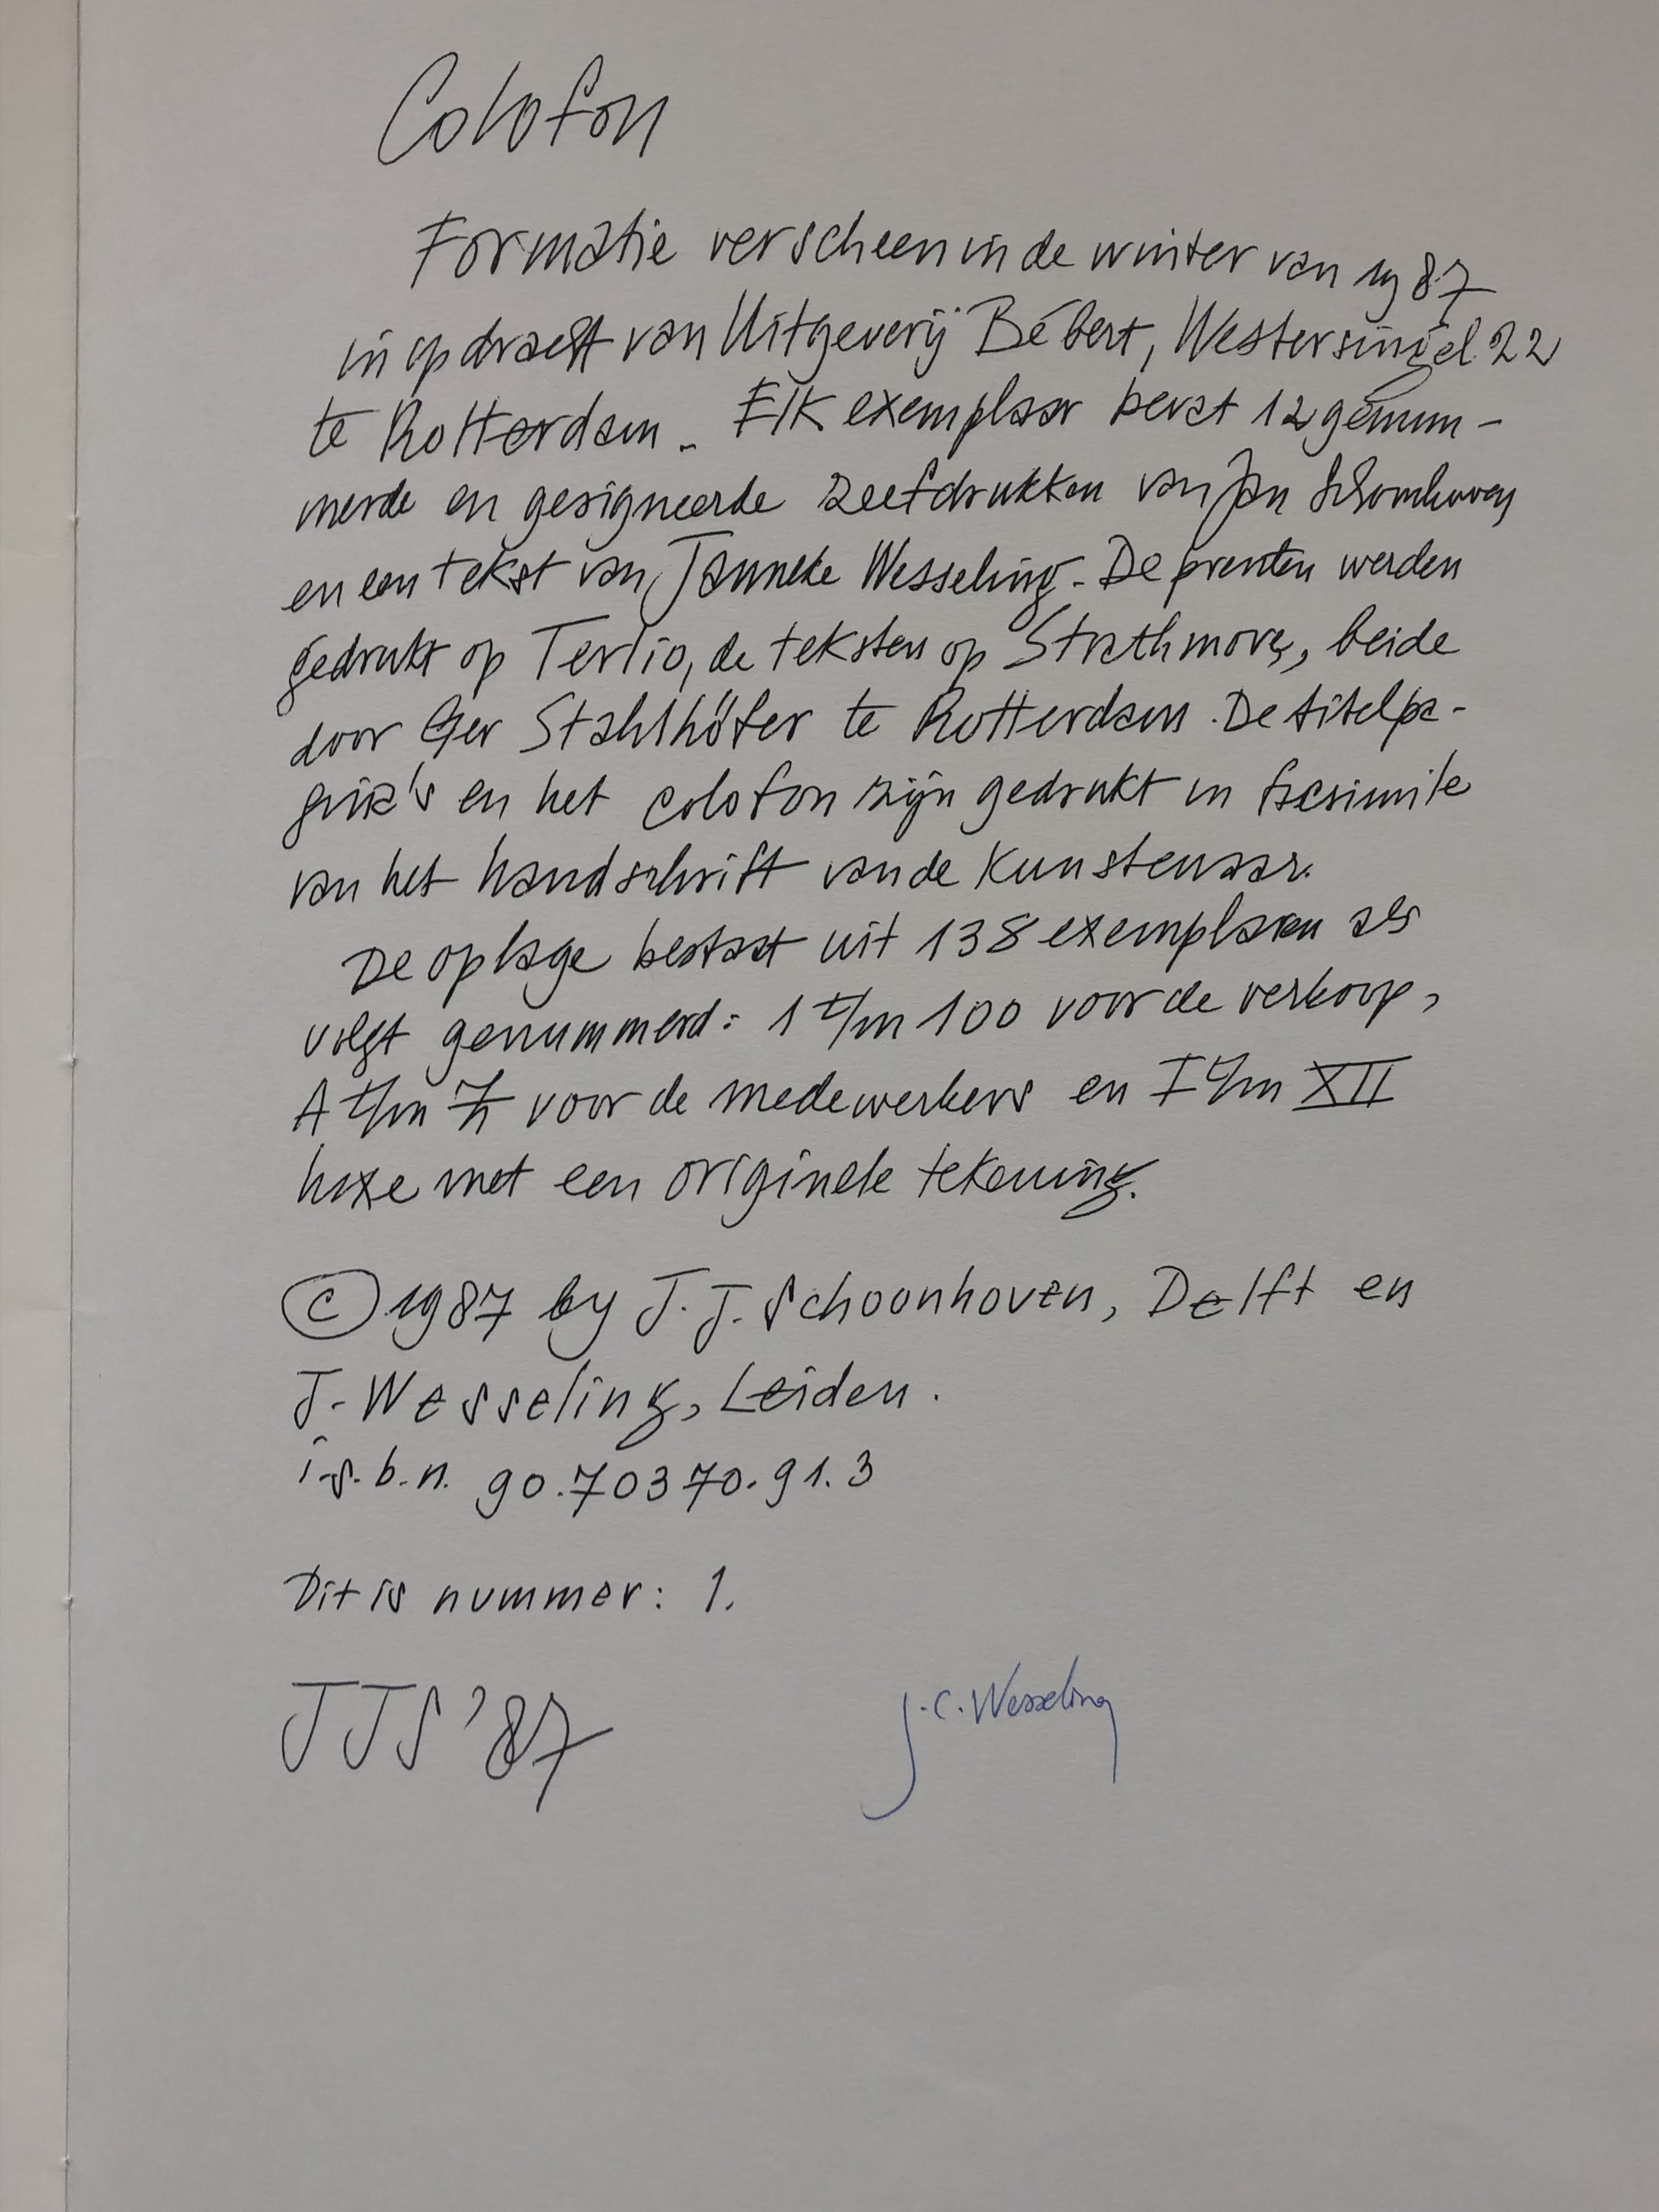 Colofon
Formatie verscheen in de winter van 1987
in opdracht van Uitgeverij Bébert, Westersingel 22
te Rotterdam. Elk exemplaar bevat 12 genum-
merde en gesigneerde zeefdrukken van Jan Schoonhoven
en een tekst van Janneke Wesseling. De prenten werden
gedrukt op Tertio, de teksten op Strathmore, beide
door Ger Stahlhöfer te Rotterdam. De titelpa-
gina's en het colofon zijn gedrukt in facsimile
van het handschrift van de Kunstenaar.
De oplage bestaat uit 138 exemplaren als
volgt genummerd: 1 t/m 100 voor de verkoop,
A t/m Z voor de medewerkers en I t/m XII
luxe met een originele tekening.
© 1987 by J.J. Schoonhoven, Delft en
J. Wesseling, Leiden.
i.s.b.n. 90.70370.91.3
Dit is nummer: 1.
JJS '87
J.C. Wesseling